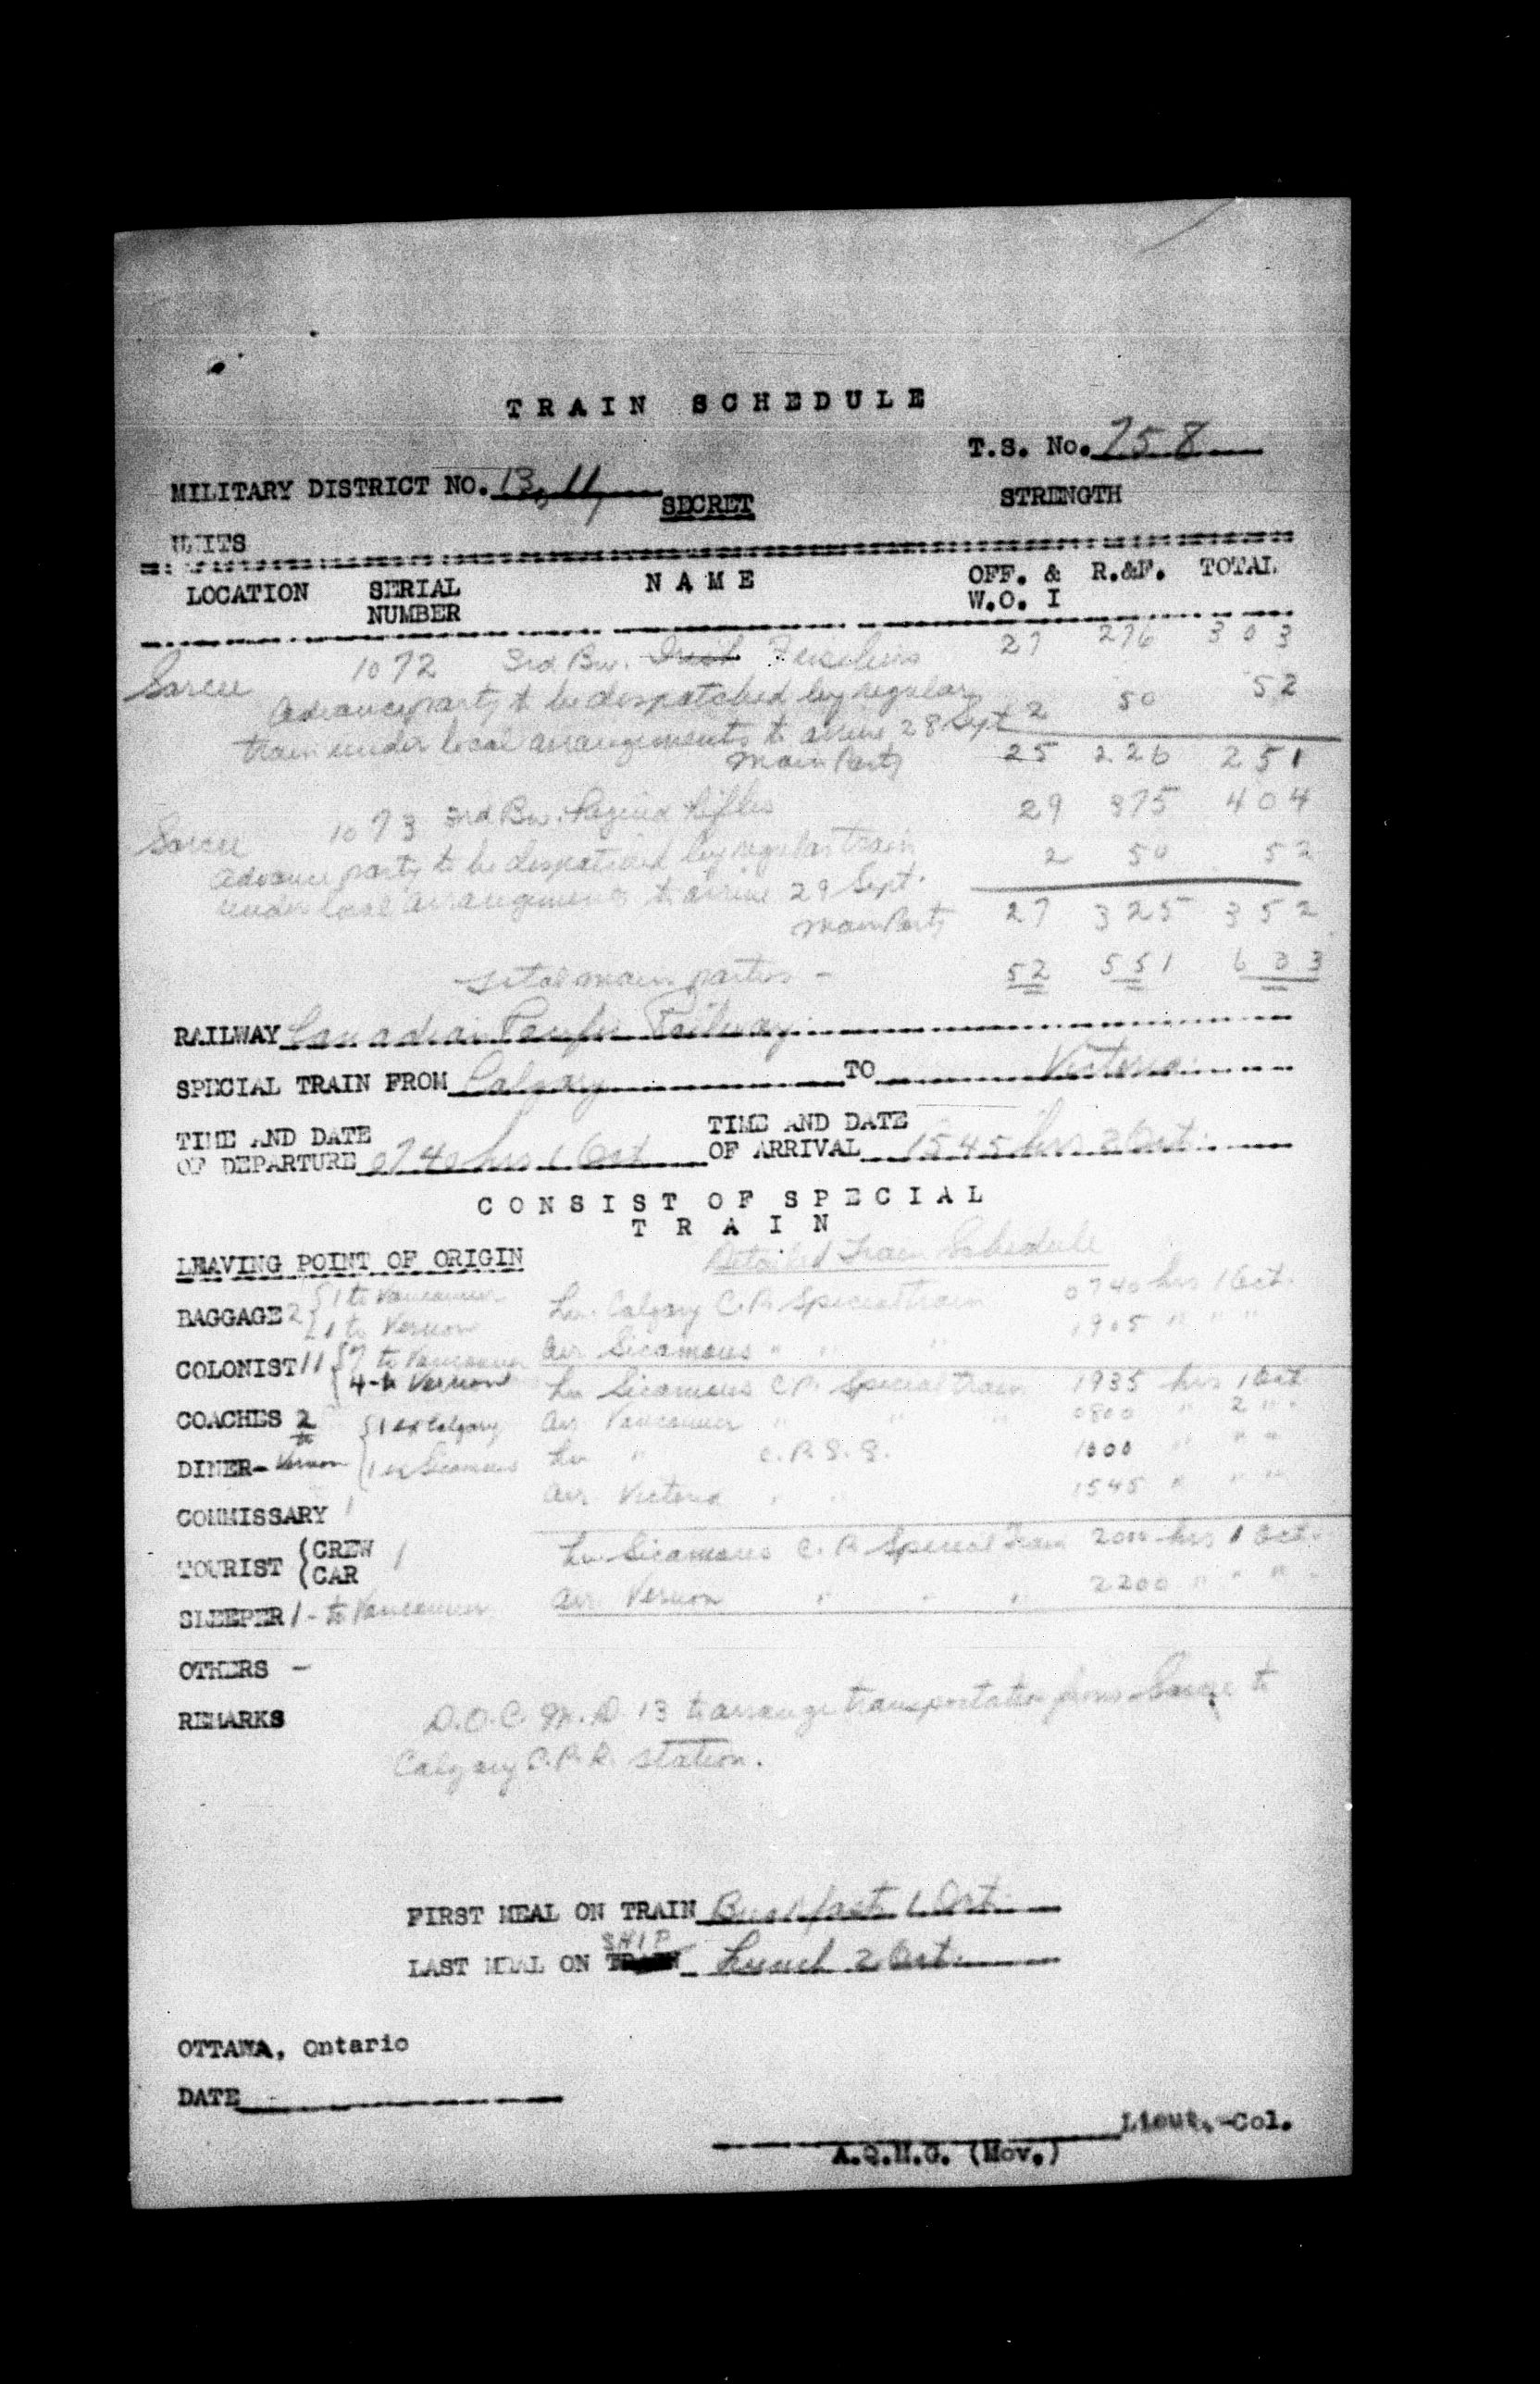 TRAIN SCHEDULE
T.S. No. 758
MILITARY DISTRICT NO. 13, 11,
SECRET
STRENGTH
UNITS
LOCATION SERIAL NUMBER NAME OFF. & W.O. I R.&F. TOTAL
Sarcee 1072 3rd Bn. Irish Fusiliers 27 276 303
Advance party to be despatched by regular 2 50 52
train under local arrangements to arrive 28 Sept
Main Party 25 226 251
Sarcee 1073 3rd Bn. Regina Rifles 29 375 404
Advance party to be despatched by regular train 2 50 52
under local arrangements to arrive 29 Sept.
Main Party 27 325 352
Total main parties - 52 551 603
RAILWAY Canadian Pacific Railway
SPECIAL TRAIN FROM Calgary TO Victoria
TIME AND DATE OF DEPARTURE 0740 hrs 1 Oct
TIME AND DATE OF ARRIVAL 1545 hrs 2 Oct.
CONSIST OF SPECIAL
TRAIN
LEAVING POINT OF ORIGIN
Detailed Train Schedule
BAGGAGE 2 { 1 to Vancouver
1 to Vernon
Lv. Calgary C.P. Special train 0740 hrs 1 Oct.
Arr Sicamous " " " 1905 " " "
COLONIST 11 { 7 to Vancouver
4 - to Vernon
Lv Sicamous C.P. Special train 1935 hrs 1 Oct
COACHES 2 to Vernon { 1 ex Calgary
1 ex Sicamous
Arr Vancouver " " " 0800 " 2 " "
DINER -
Lv " C.P.S.S. 1000 " " "
Arr Victoria " " 1545 " " "
COMMISSARY 1
TOURIST (CREW (CAR 1
Lv Sicamous C.P. Special Train 2000 hrs 1 Oct.
Arr Vernon " " " 2200 " " "
SLEEPER 1 - to Vancouver
OTHERS -
REMARKS
D.O.C. M.D. 13 to arrange transportation from Sarcee to
Calgary C.P.R. station.
FIRST MEAL ON TRAIN Breakfast 1 Oct.
SHIP
LAST MEAL ON TRAIN Lunch 2 Oct.
OTTAWA, Ontario
DATE
Lieut.-Col.
A.Q.M.G. (Mov.)